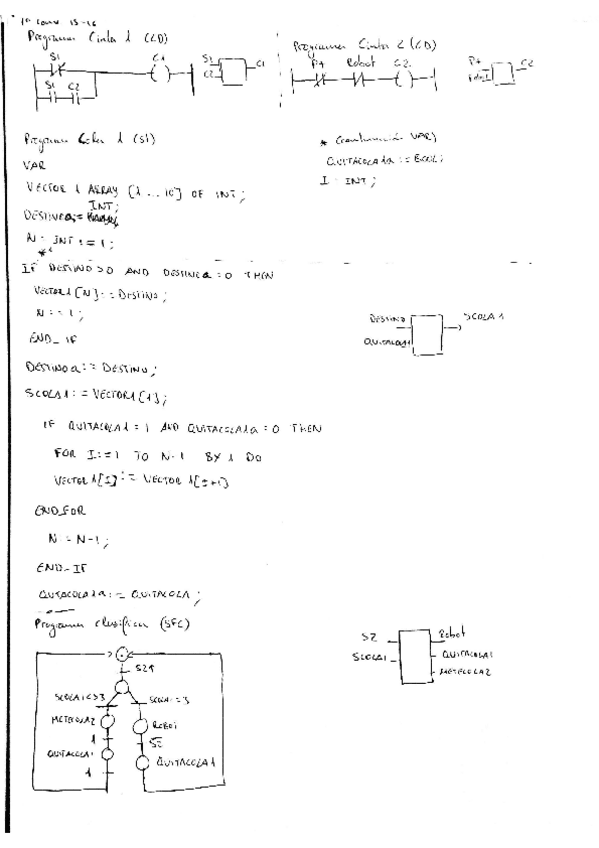 1º Conv 15-16
Programa Cinta 1 (LD)
S1
C1
S1
C2
S1
C2
C1
Programa Cinta 2 (LD)
P4
Robot
C2
P4
Robot
C2
Programa Cola 1 (St)
VAR
VECTOR 1 ARRAY [1 ... 10] OF INT;
INT;
DESTINOa:=
N: INT := 1;
*
* (continuación VAR)
QUITACOLA1a := BOOL;
I: INT;
IF DESTINO>0 AND DESTINOa=0 THEN
VECTOR1[N]:=DESTINO;
END_IF
DESTINOa:= DESTINO;
SCOLA1:=VECTOR1[1];
DESTINO
QUITACOLA1
SCOLA1
IF QUITACOLA1=1 AND QUITACOLA1a=0 THEN
FOR I:=1 TO N-1 BY 1 DO
VECTOR1[I]:= VECTOR1[I+1]
END_FOR
N:=N-1;
END_IF
QUITACOLA1a:= QUITACOLA;
Programa clasificar (SFC)
S2
SCOLA1
Robot
QUITACOLA1
METECOLA2
S2↑
SCOLA1<>3
SCOLA1=3
METECOLA2
ROBOT
1
S2
QUITACOLA1
QUITACOLA1
1